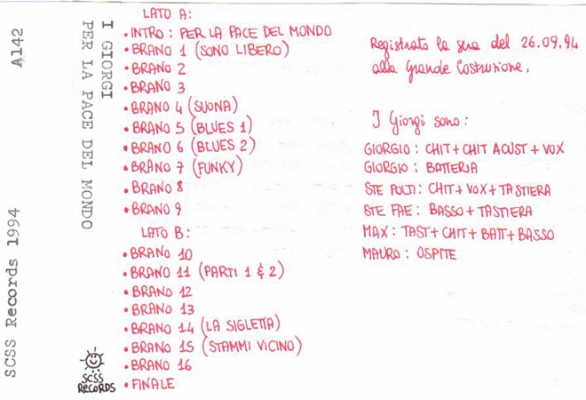 A142
SCSS Records 1994
I GIORGI
PER LA PACE DEL MONDO
SCSS
RECORDS
LATO A:
• INTRO : PER LA PACE DEL MONDO
• BRANO 1 (SONO LIBERO)
• BRANO 2
• BRANO 3
• BRANO 4 (SUONA)
• BRANO 5 (BLUES 1)
• BRANO 6 (BLUES 2)
• BRANO 7 (FUNKY)
• BRANO 8
• BRANO 9
LATO B:
• BRANO 10
• BRANO 11 (PARTI 1 & 2)
• BRANO 12
• BRANO 13
• BRANO 14 (LA SIGLETTA)
• BRANO 15 (STAMMI VICINO)
• BRANO 16
• FINALE
Registrato la sera del 26.09.94
alla Grande Costruzione.
I Giorgi sono:
GIORGIO : CHIT + CHIT ACUST + VOX
GIORGIO : BATTERIA
STE POLTI : CHIT + VOX + TASTIERA
STE FAE : BASSO + TASTIERA
MAX : TAST + CHIT + BATT + BASSO
MAURO : OSPITE